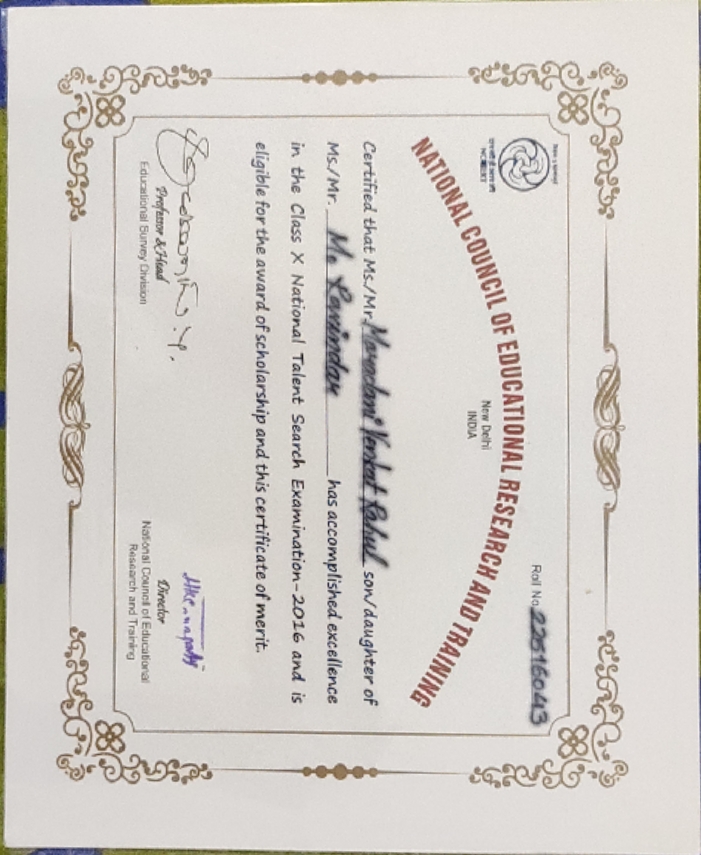 Roll No. 22516043
एन सी ई आर टी
NCERT
NATIONAL COUNCIL OF EDUCATIONAL RESEARCH AND TRAINING
New Delhi
INDIA
Certified that Ms./Mr. Venkat Rahul son/daughter of
Ms./Mr. M. has accomplished excellence
in the Class X National Talent Search Examination-2016 and is
eligible for the award of scholarship and this certificate of merit.
Professor & Head
Educational Survey Division
Director
National Council of Educational
Research and Training